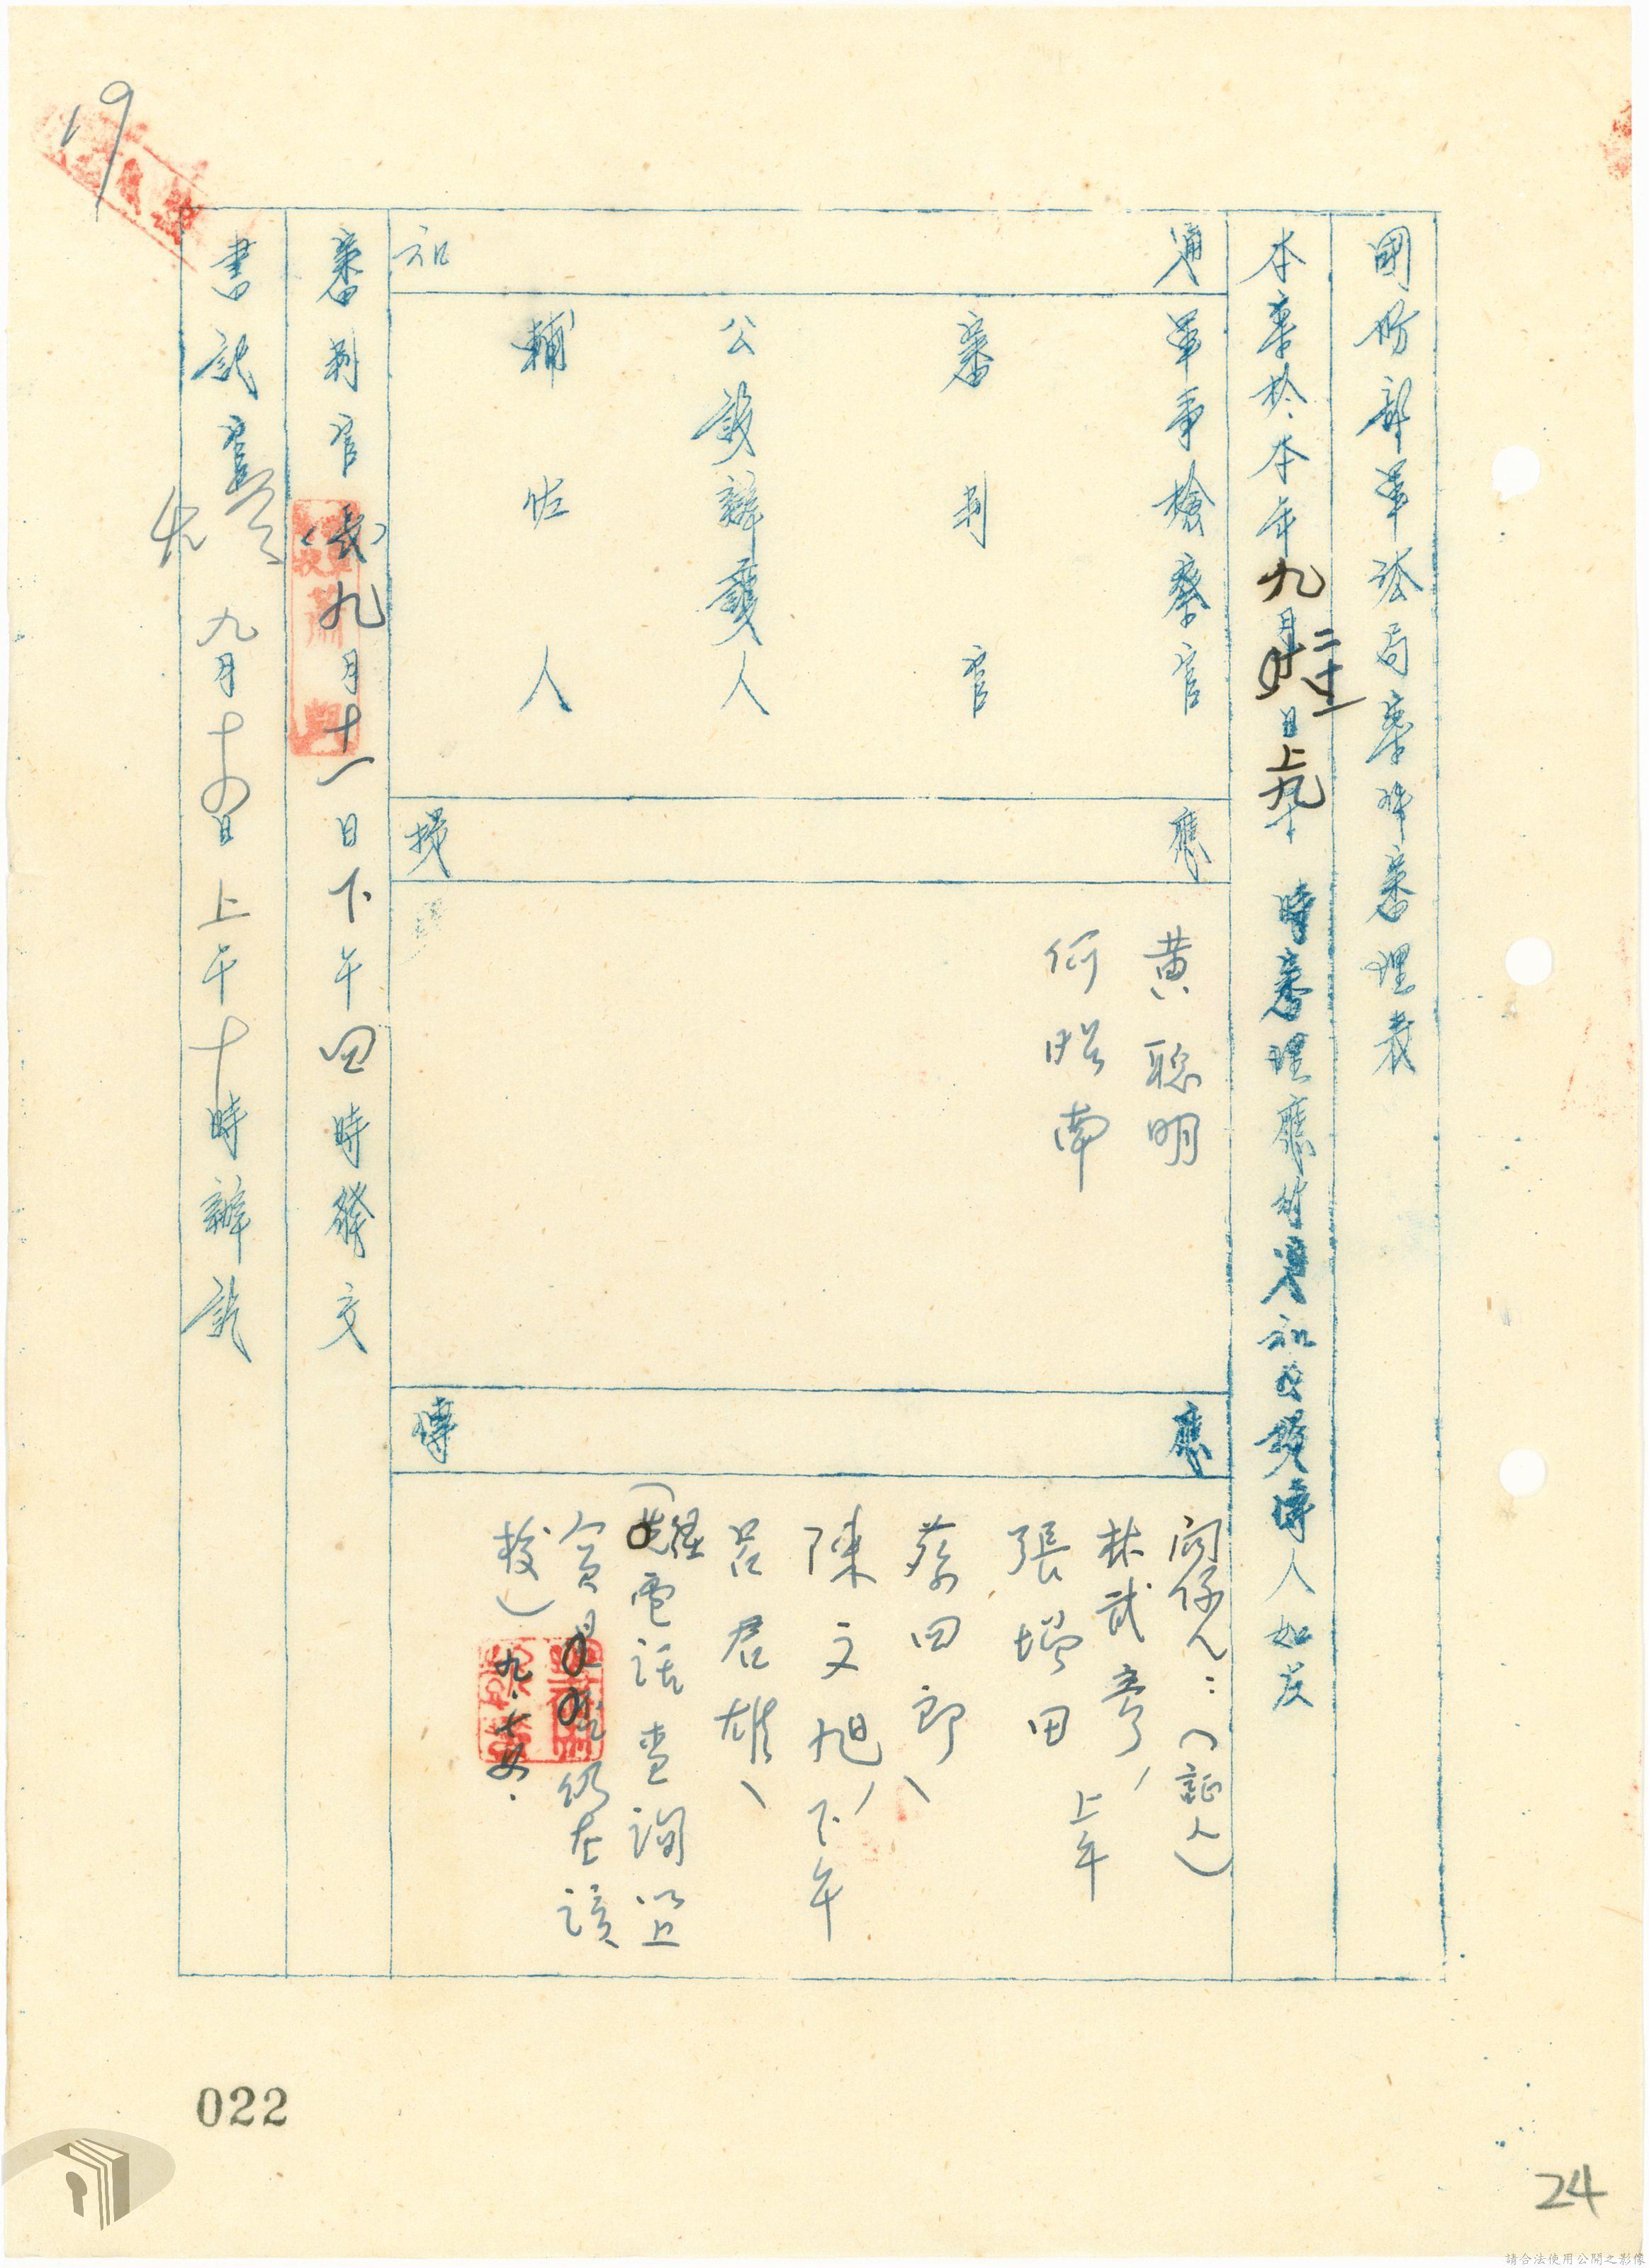 國防部軍法局案件審理表
本案於本年九月二十二日上九午時審理應行通知及提傳人如左
通知
軍事檢察官
審判官
公設辯護人
輔佐人
應提
黃聰明
何昭南
應傳
關係人：（証人）
林武彥、
張增田 上午
蔡四郎、
陳文旭、下午
呂君雄、
（經電話查詢以上
人員是仍在該
校）九、
審判官（長）九月十一日下午四時發文
書記官 九月十 日上午十時辦訖
19
022
24
請合法使用公開之影像